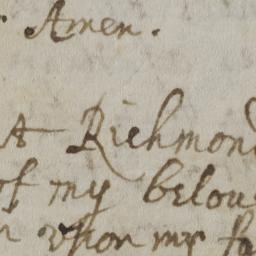 Amen.
At Richmond
of my belou
vpon my fa